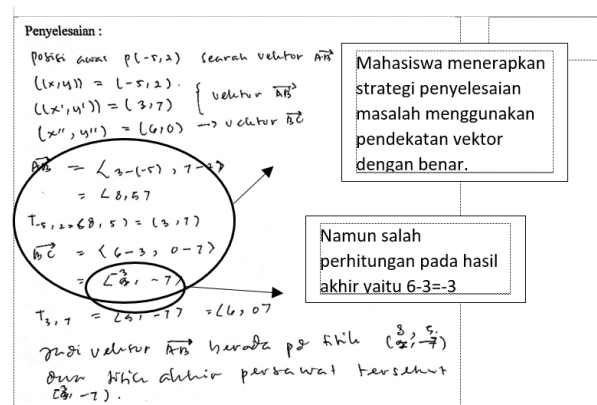 Penyelesaian :
posisi awal P(-5,2) searah vektor AB
((x,y)) = (-5,2).
((x',y')) = (3,7) } vektor AB
(x'',y'') = (6,0) → vektor BC
AB = <3-(-5), 7-2>
= <8,5>
= (3,7)
BC = <6-3, 0-7>
= -7>
T3,7 = = <6,0>
Jadi vektor AB berada pd titik
dan titik akhir pesawat tersebut
-7).
Mahasiswa menerapkan
strategi penyelesaian
masalah menggunakan
pendekatan vektor
dengan benar.
Namun salah
perhitungan pada hasil
akhir yaitu 6-3=-3